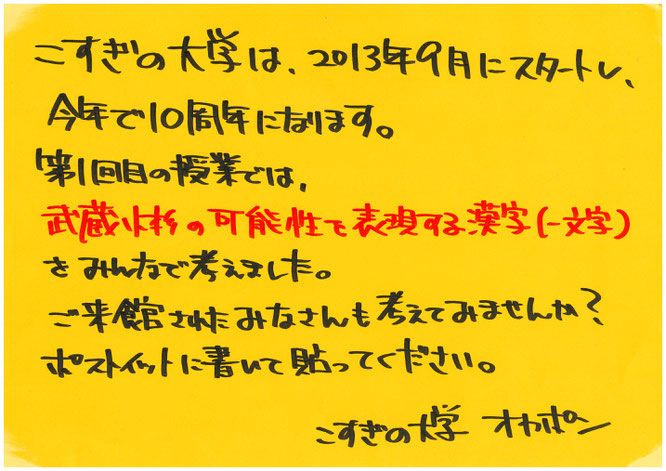 こすぎの大学は、2013年9月にスタートし、
今年で10周年になります。
第1回目の授業では、
武蔵小杉の可能性を表現する漢字(一文字)
をみんなで考えました。
ご来館されたみなさんも考えてみませんか?
ポストイットに書いて貼ってください。
こすぎの大学 オカポン